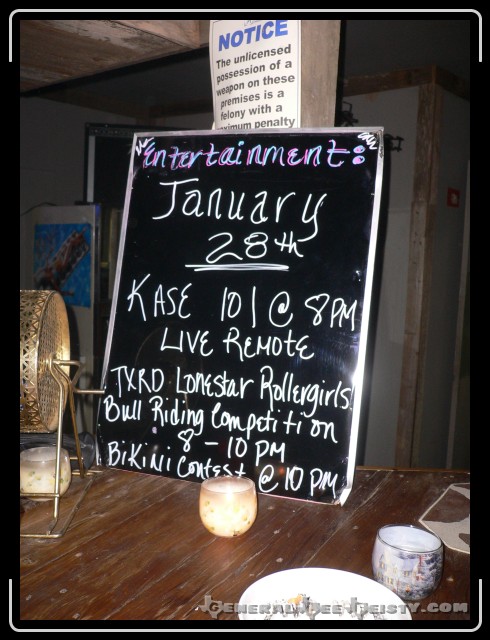 NOTICE
The unlicensed
possession of a
weapon on these
premises is a
felony with a
maximum penalty
Entertainment:
January
28th
KASE 101 @ 8PM
LIVE REMOTE
TXRD Lonestar Rollergirls!
Bull Riding Competition
8 - 10 PM
Bikini Contest @ 10 pm
GeneralDeeHeisty.com